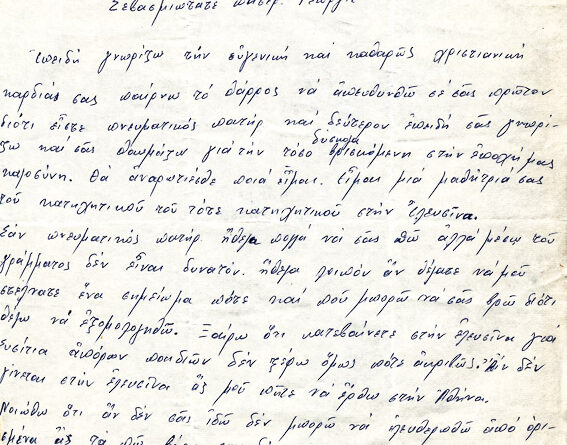 Σεβασμιώτατε πάτερ Γεώργιε
Ἐπειδή γνωρίζω τήν εὐγενική καί καθαρῶς χριστιανική
καρδιάς σας παίρνω τό θάρρος νά ἀπευθυνθῶ σέ σᾶς πρῶτον
διότι εἶστε πνευματικός πατήρ καί δεύτερον ἐπειδή σᾶς γνωρί-
ζω καί σᾶς θαυμάζω γιά τήν τόσο δύσκολα βρισκόμενη στήν ἐποχή μας
καλοσύνη. Θά ἀναρωτιέσθε ποιά εἶμαι. Εἶμαι μιά μαθήτριά σας
τοῦ κατηχητικοῦ τοῦ τότε κατηχητικοῦ στήν Ἐλευσῖνα.
Σάν πνευματικός πατήρ ἤθελα πολλά νά σᾶς πῶ ἀλλά μέσω τοῦ
γράμματος δέν εἶναι δυνατόν. ἤθελα λοιπόν ἄν θέλατε νά μοῦ
στέλνατε ἕνα σημείωμα πότε καί ποῦ μπορῶ να σᾶς βρῶ διότι
θέλω νά ἐξομολογηθῶ. Ξαίρω ὅτι κατεβαίνετε στήν ἐλευσῖνα γιά
συσίτια ἀπόρων παιδιῶν δέν ξέρω ὅμως πότε ἀκριβῶς. Ἄν δέν
γίνεται στήν ἐλευσῖνα ἄς μοῦ πῆτε νά ἔρθω στήν Ἀθήνα.
Νοιώθω ὅτι ἄν δέν σᾶς ἰδῶ δέν μπορῶ νά ἐλευθερωθῶ ἀπό ὁρι-
σμένα ἄς τά